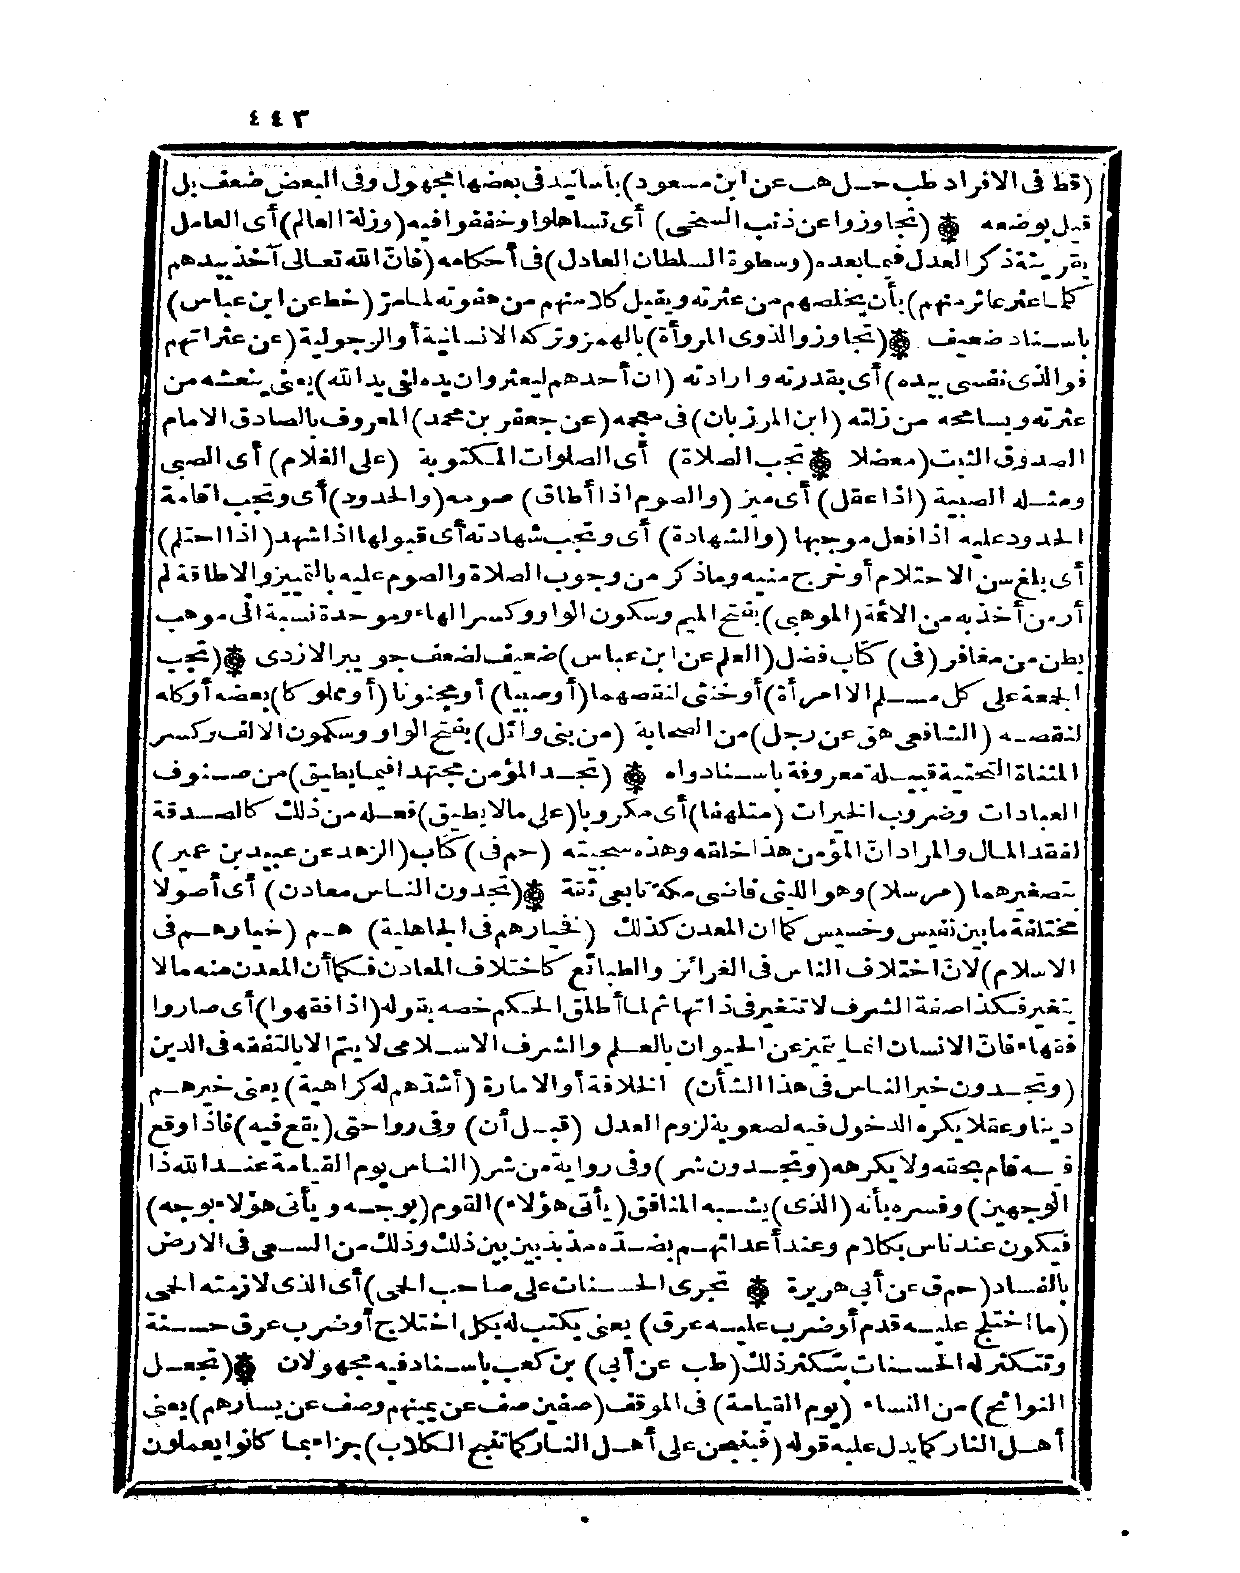 ٤٤٣
(قط فى الافراد طب حل هب عن ابن مسعود) بأسانيد فى بعضها مجهول وفى البعض ضعف بل
قيل بوضعه ۞ (تجاوزوا عن ذنب السخى) أى تساهلوا وخففوا فيه (وزلة العالم) أى العامل
بقرينة ذكر العدل فيما بعده (وسطوة السلطان العادل) فى أحكامه (فانّ الله تعالى آخذ بيدهم
كلما عثر عاثر منهم) بأن يخلصهم من عثرته ويقيل كلا منهم من هفوته لما مرّ (خط عن ابن عباس)
باسناد ضعيف ۞ (تجاوزوا لذوى المروأة) بالهمز وتركه الانسانية أو الرجولية (عن عثراتهم
فوالذى نفسى بيده) أى بقدرته وارادته (ان أحدهم ليعثر وان يده لفى يد الله) يعنى ينعشه من
عثرته ويسامحه من زلته (ابن المرزبان) فى معجمه (عن جعفر بن محمد) المعروف بالصادق الامام
الصدوق الثبت (معضلا ۞ تجب الصلاة) أى الصلوات المكتوبة (على الغلام) أى الصبى
ومثله الصبية (اذا عقل) أى ميز (والصوم اذا أطاق) صومه (والحدود) أى وتجب اقامة
الحدود عليه اذا فعل موجبها (والشهادة) أى وتجب شهادته أى قبولها اذا شهد (اذا احتلم)
أى بلغ سن الاحتلام أو خرج منيه وما ذكر من وجوب الصلاة والصوم عليه بالتمييز والاطاقة لم
أر من أخذ به من الائمة (الموهبى) بفتح الميم وسكون الواو وكسر الهاء وموحدة نسبة الى موهب
بطن من مغافر (فى) كتاب فضل (العلم عن ابن عباس) ضعيف لضعف جويبر الازدى ۞ (تجب
الجمعة على كل مسلم الا امرأة) أو خنثى لنقصهما (أو صبيا) أو مجنونا (أو مملوكا) بعضه أو كله
لنقصه (الشافعى هق عن رجل) من الصحابة (من بنى وائل) بفتح الواو وسكون الالف وكسر
المثناة التحتية قبيلة معروفة باسناد واه ۞ (تجد المؤمن مجتهدا فيما يطيق) من صنوف
العبادات وضروب الخيرات (متلهفا) أى مكروبا (على مالا يطيق) فعله من ذلك كالصدقة
لفقد المال والمراد انّ المؤمن هذا خلقه وهذه سجيته (حم فى) كتاب (الزهد عن عبيد بن عمير)
بتصغيرهما (مرسلا) وهو الليثى قاضى مكة تابعى ثقة ۞ (تجدون الناس معادن) أى أصولا
مختلفة ما بين نفيس وخسيس كما ان المعدن كذلك (فخيارهم فى الجاهلية) هم (خيارهم فى
الاسلام) لانّ اختلاف الناس فى الغرائز والطبائع كاختلاف المعادن فكما أن المعدن منه مالا
يتغير فكذا صفة الشرف لا تتغير فى ذاتها ثم لما أطلق الحكم خصه بقوله (اذا فقهوا) أى صاروا
فقهاء فانّ الانسان انما يتميز عن الحيوان بالعلم والشرف الاسلامى لا يتم الا بالتفقه فى الدين
(وتجدون خير الناس فى هذا الشأن) الخلافة أو الامارة (أشدّهم له كراهية) يعنى خيرهم
دينا وعقلا يكره الدخول فيه لصعوبة لزوم العدل (قبل أن) وفى رواحتى (يقع فيه) فاذا وقع
فيه قام بحقه ولا يكرهه (وتجدون شر) وفى رواية من شر (الناس يوم القيامة عند الله ذا
الوجهين) وفسره بأنه (الذى) يشبه المنافق (يأتى هؤلاء) القوم (بوجه ويأتى هؤلاء بوجه)
فيكون عند ناس بكلام وعند أعدائهم بضدّه مذبذبين بين ذلك وذلك من السعى فى الارض
بالفساد (حم ق عن أبى هريرة ۞ تجرى الحسنات على صاحب الحمى) أى الذى لازمته الحمى
(ما اختلج عليه قدم أو ضرب عليه عرق) يعنى يكتب له بكل اختلاج أو ضرب عرق حسنة
وتتكثر له الحسنات بتكثر ذلك (طب عن أبى) بن كعب باسناد فيه مجهولان ۞ (تجعل
النوائح) من النساء (يوم القيامة) فى الموقف (صفين صف عن يمينهم وصف عن يسارهم) يعنى
أهل النار كما يدل عليه قوله (فينبحن على أهل النار كما تنبح الكلاب) جزاء بما كانوا يعملون